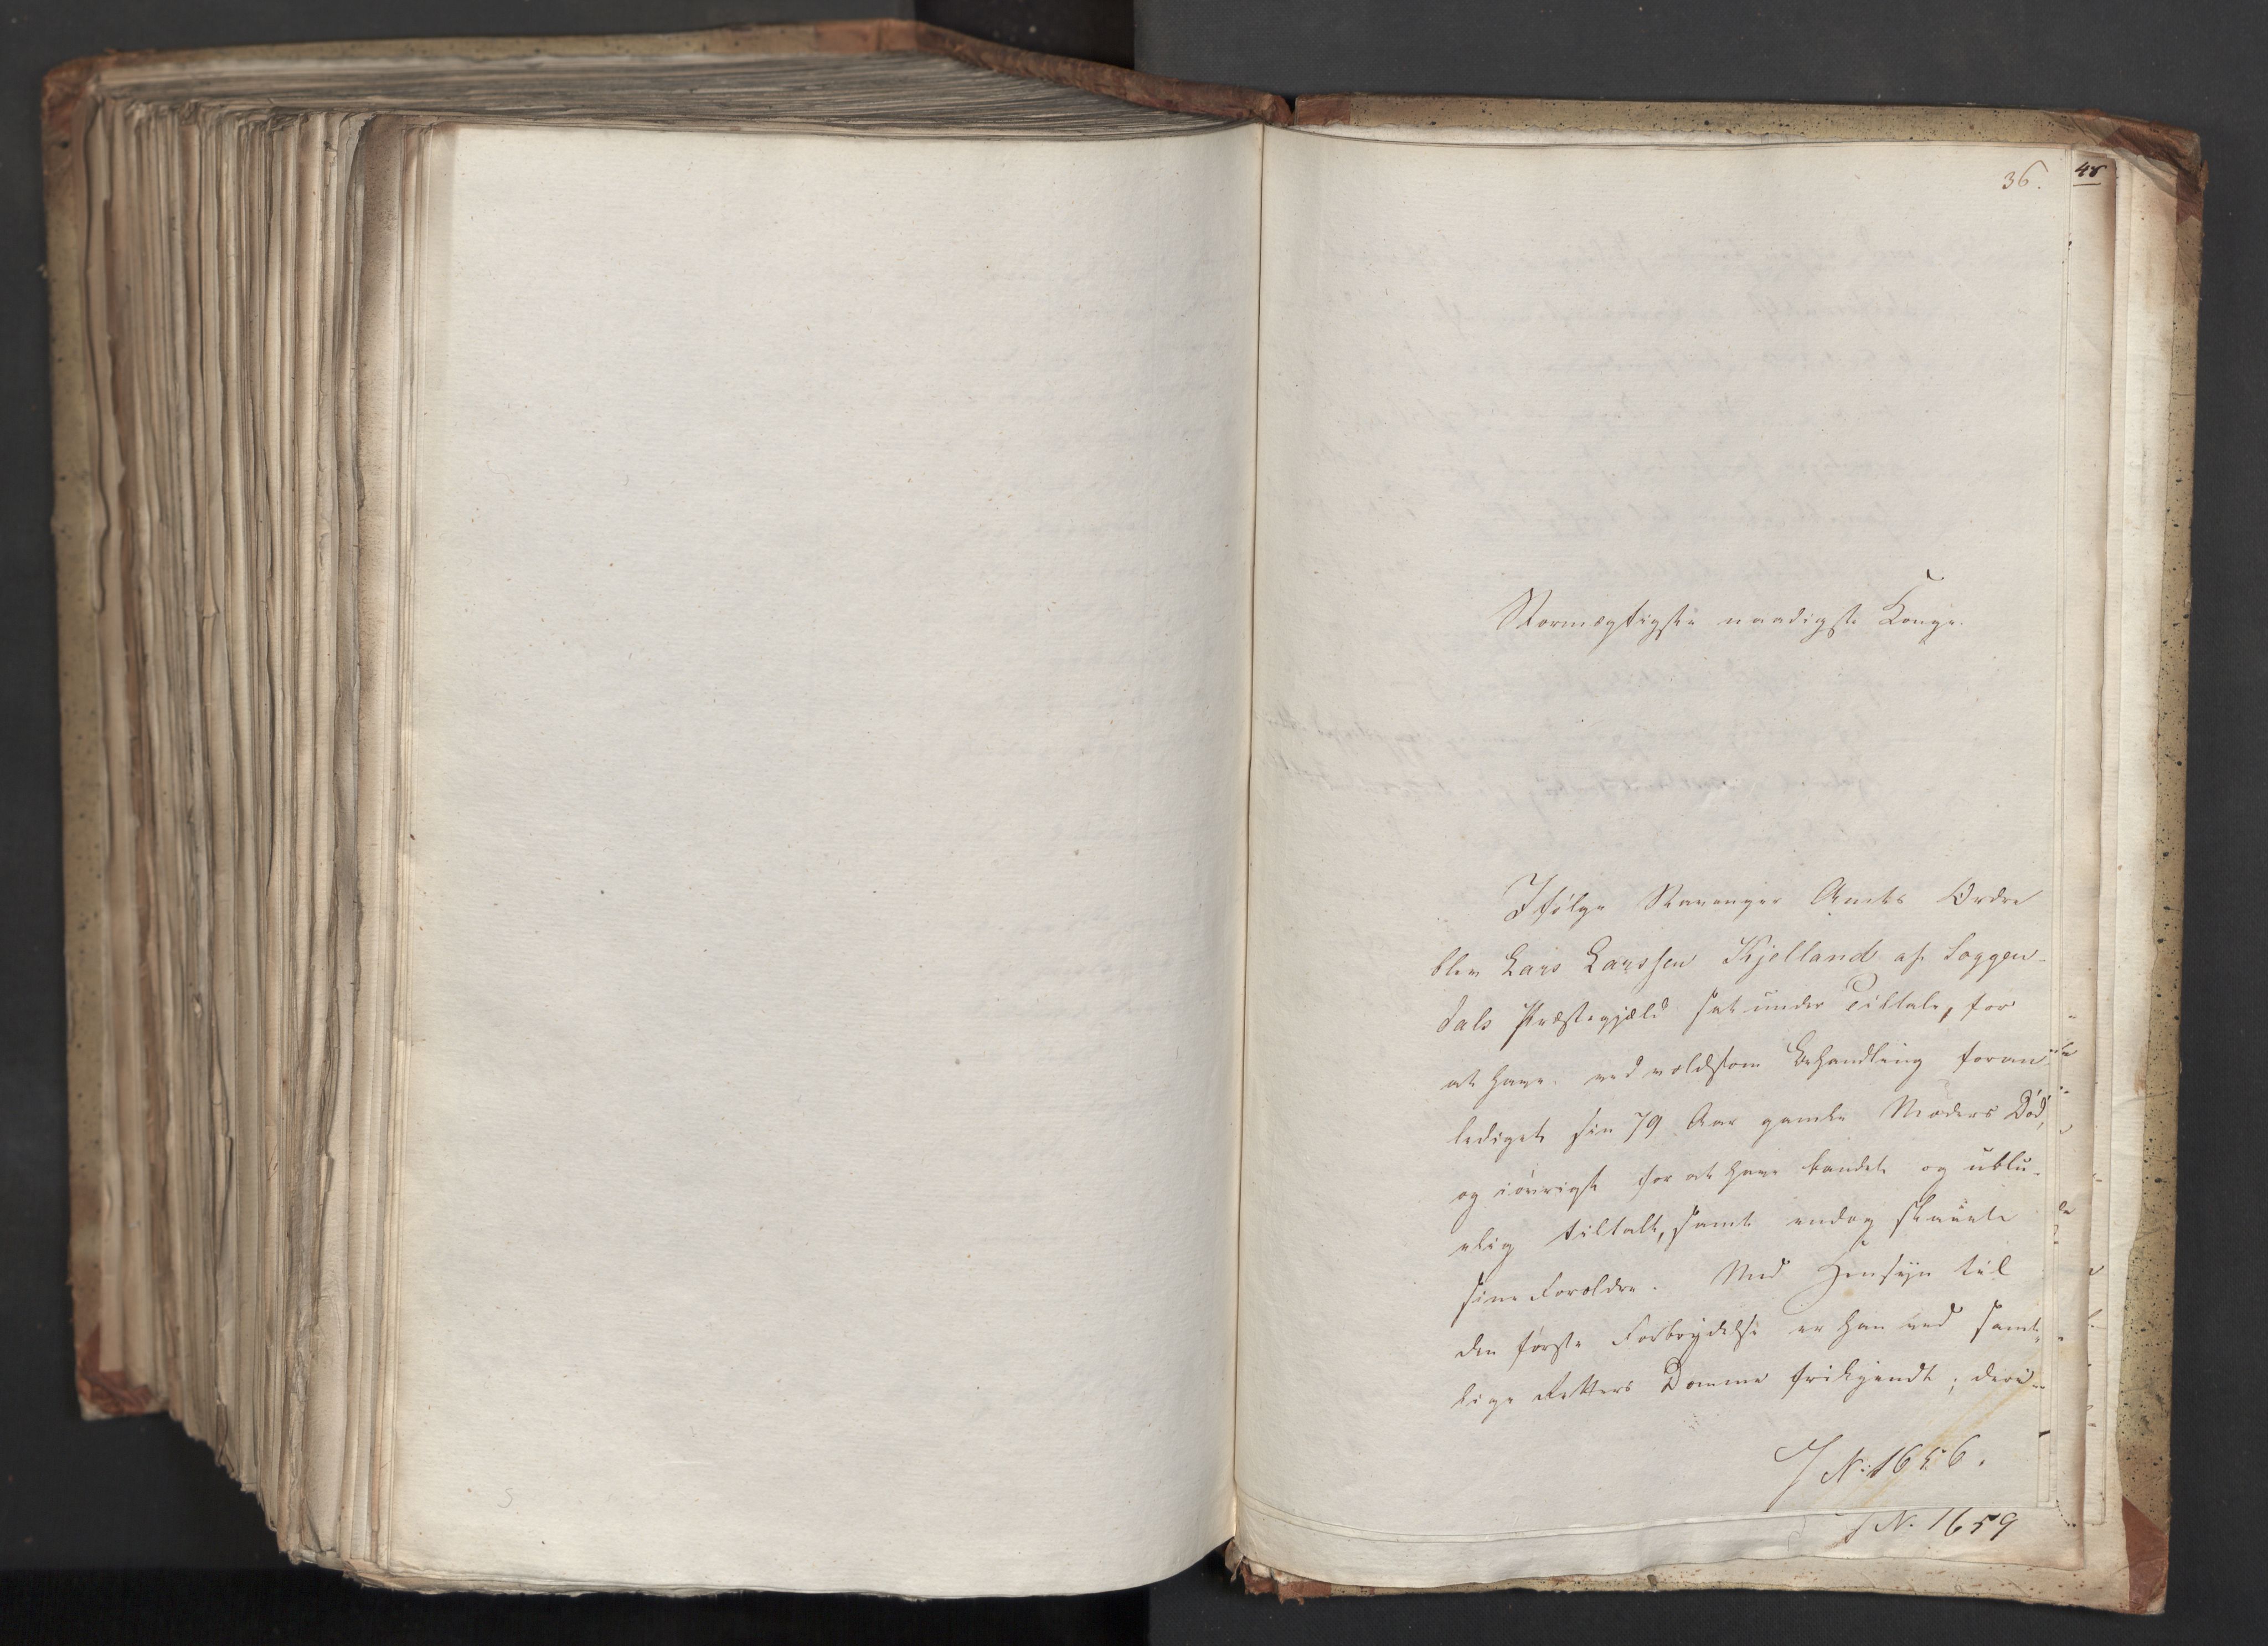 36.
48
Stormægtigste naadigste Konge.
Ifølge Stavanger Amts Ordre
blev Lars Larssen Kjelland af Soggen-
dals Præstegjæld sat under Tiltale, for
at have ved voldsom Behandling foran-
lediget sin 79 Aar gamle Moders Død,
og iøvrigt for at have bandet og ublu-
elig tiltalt, samt endog skuuet
sine Forældre. Med Hensyn til
den første Forbrydelse er han ved samt-
lige Retters Domme frikjendt; deri-
J N: 1656.
J N. 1659